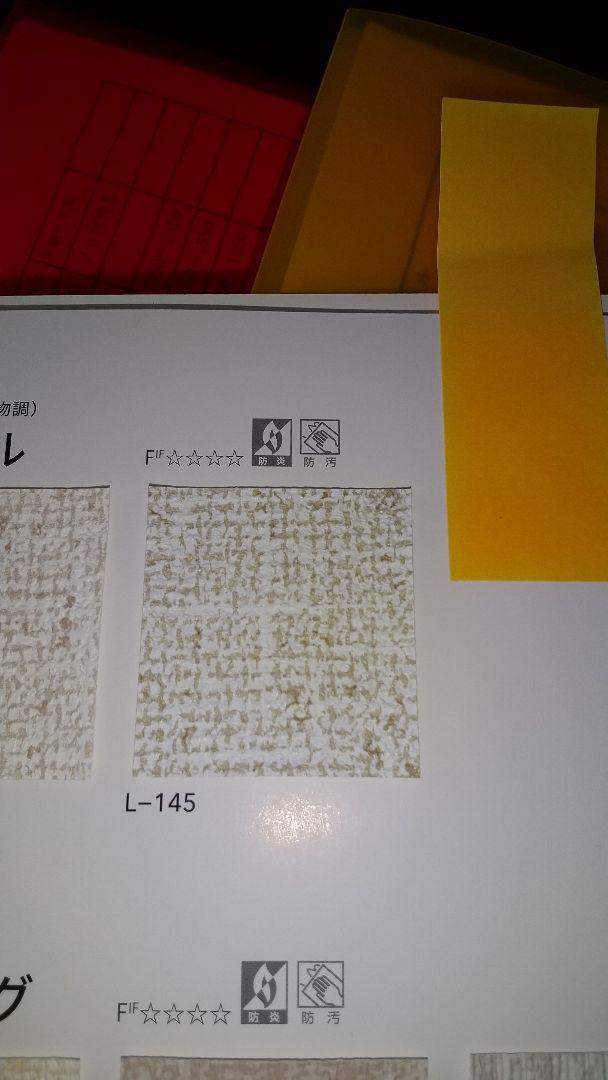 物調）
ル
F☆☆☆☆ 防炎 防汚
L-145
グ
F☆☆☆☆ 防炎 防汚